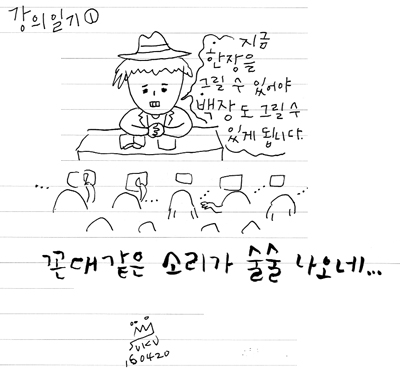 강의일기①
지금
한장을
그릴 수 있어야
백장도 그릴 수
있게 됩니다.
꼰대같은 소리가 술술 나오네...
SUKU
160420